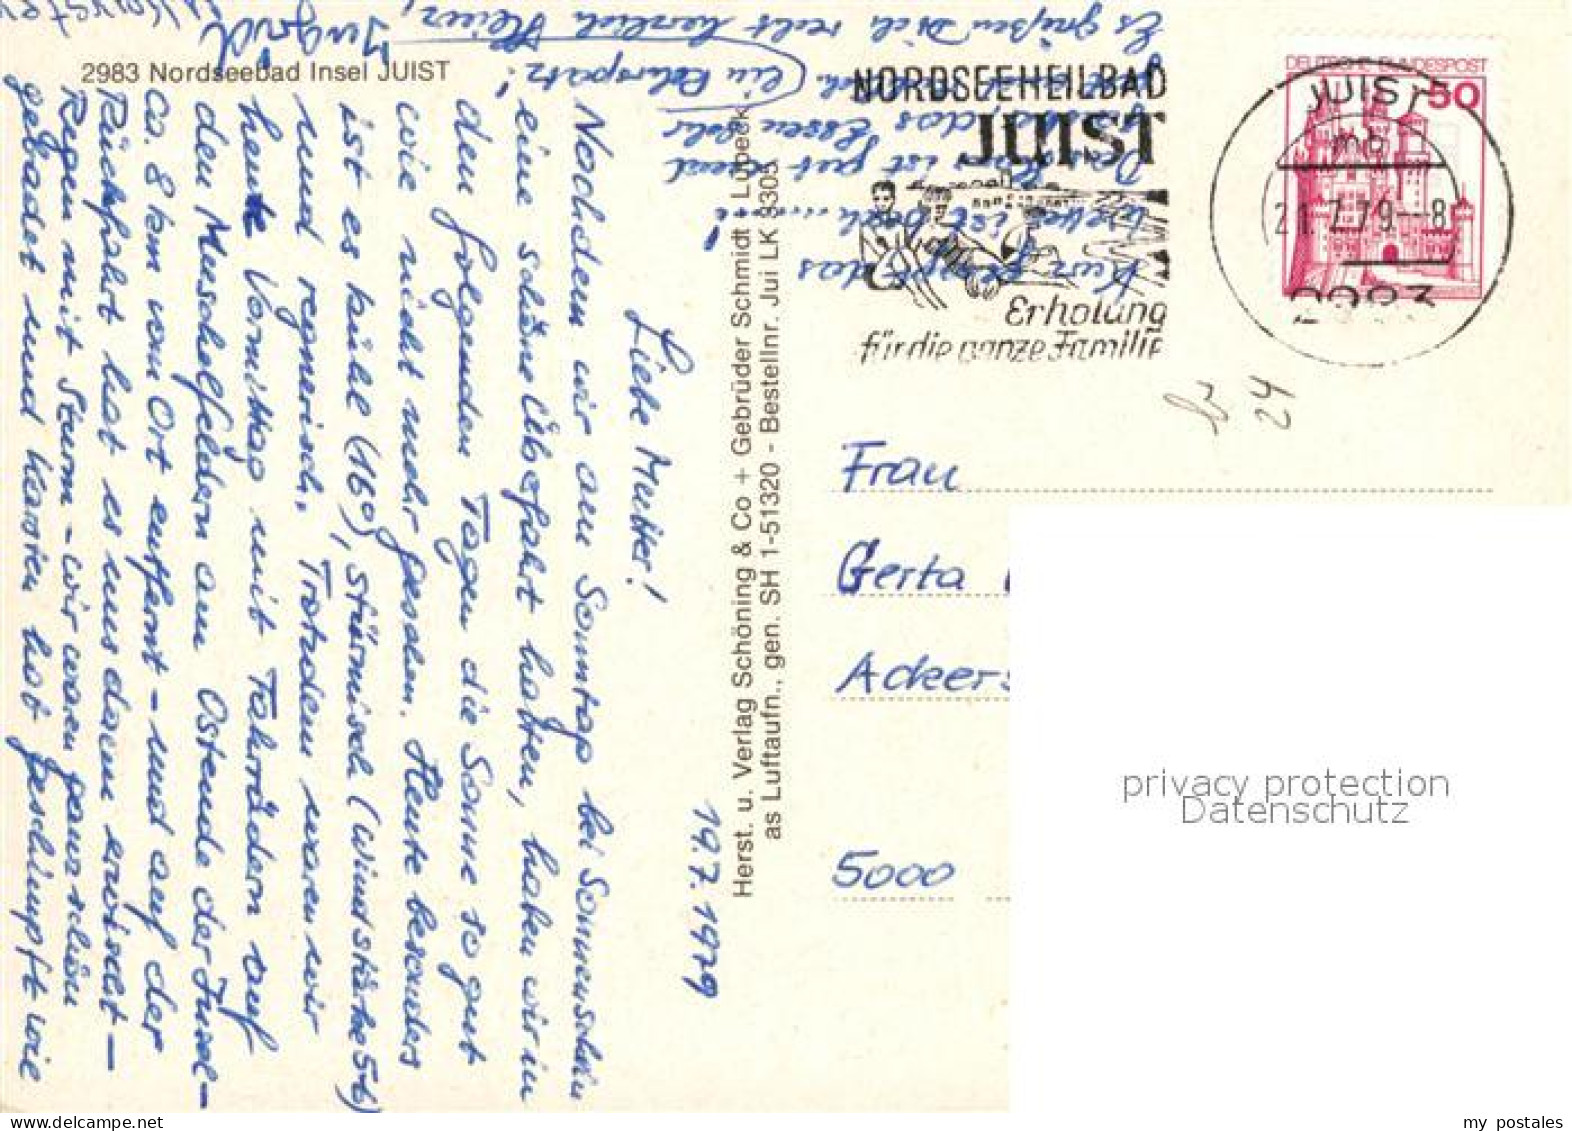 2983 Nordseebad Insel JUIST
19.7.1979
Liebe Mutter!
Nachdem wir am Sonntag bei Sonnenschein
eine schöne Überfahrt hatten, haben wir in
den folgenden Tagen die Sonne so gut
wie nicht mehr gesehen. Heute besonders
ist es kühl (16°), stürmisch (Windstärke 5-6)
und regnerisch. Trotzdem waren wir
heute Vormittag mit Fahrrädern auf
den Muschelfeldern am Ostende der Insel -
ca. 8 km vom Ort entfernt - und auf der
Rückfahrt hat es uns dann erwischt -
Regen mit Sturm - wir waren ganz schön
gebadet und Karsten hat geschimpft wie
ein Rohrspatz!
Kurzempf das
Wetter ist
Das ist gut und
das Essen sehr
Es grüßen Dich recht herzlich Heinz,
Ingrid
Herst. u. Verlag Schöning & Co + Gebrüder Schmidt Lübeck
as Luftaufn., gen. SH 1-51320 - Bestellnr. Jui LK 3305
NORDSEEHEILBAD
JUIST
Erholung
für die ganze Familie
DEUTSCHE BUNDESPOST
50
JUIST
mb
21.7.79--8
2983
Frau
Gerta
Ackers
5000
privacy protection
Datenschutz
my postales